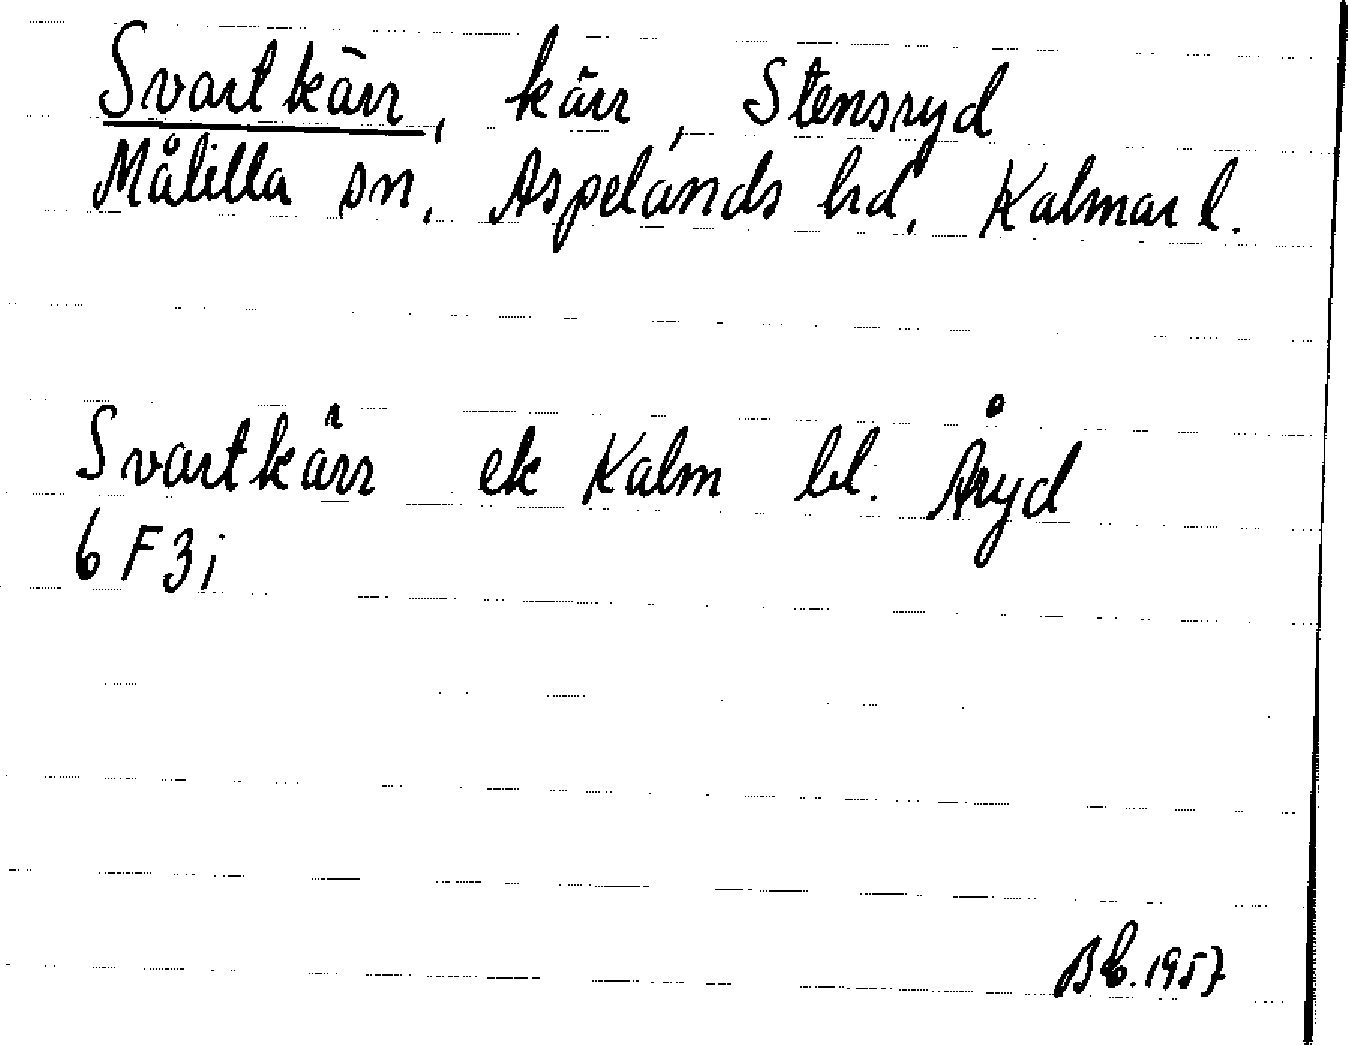 Svartkärr, kärr, Stensryd
Målilla sn, Aspelands hd, Kalmar l.
Svartkärr ek Kalm bl. Åryd
6 F 3 i
Bb. 1957